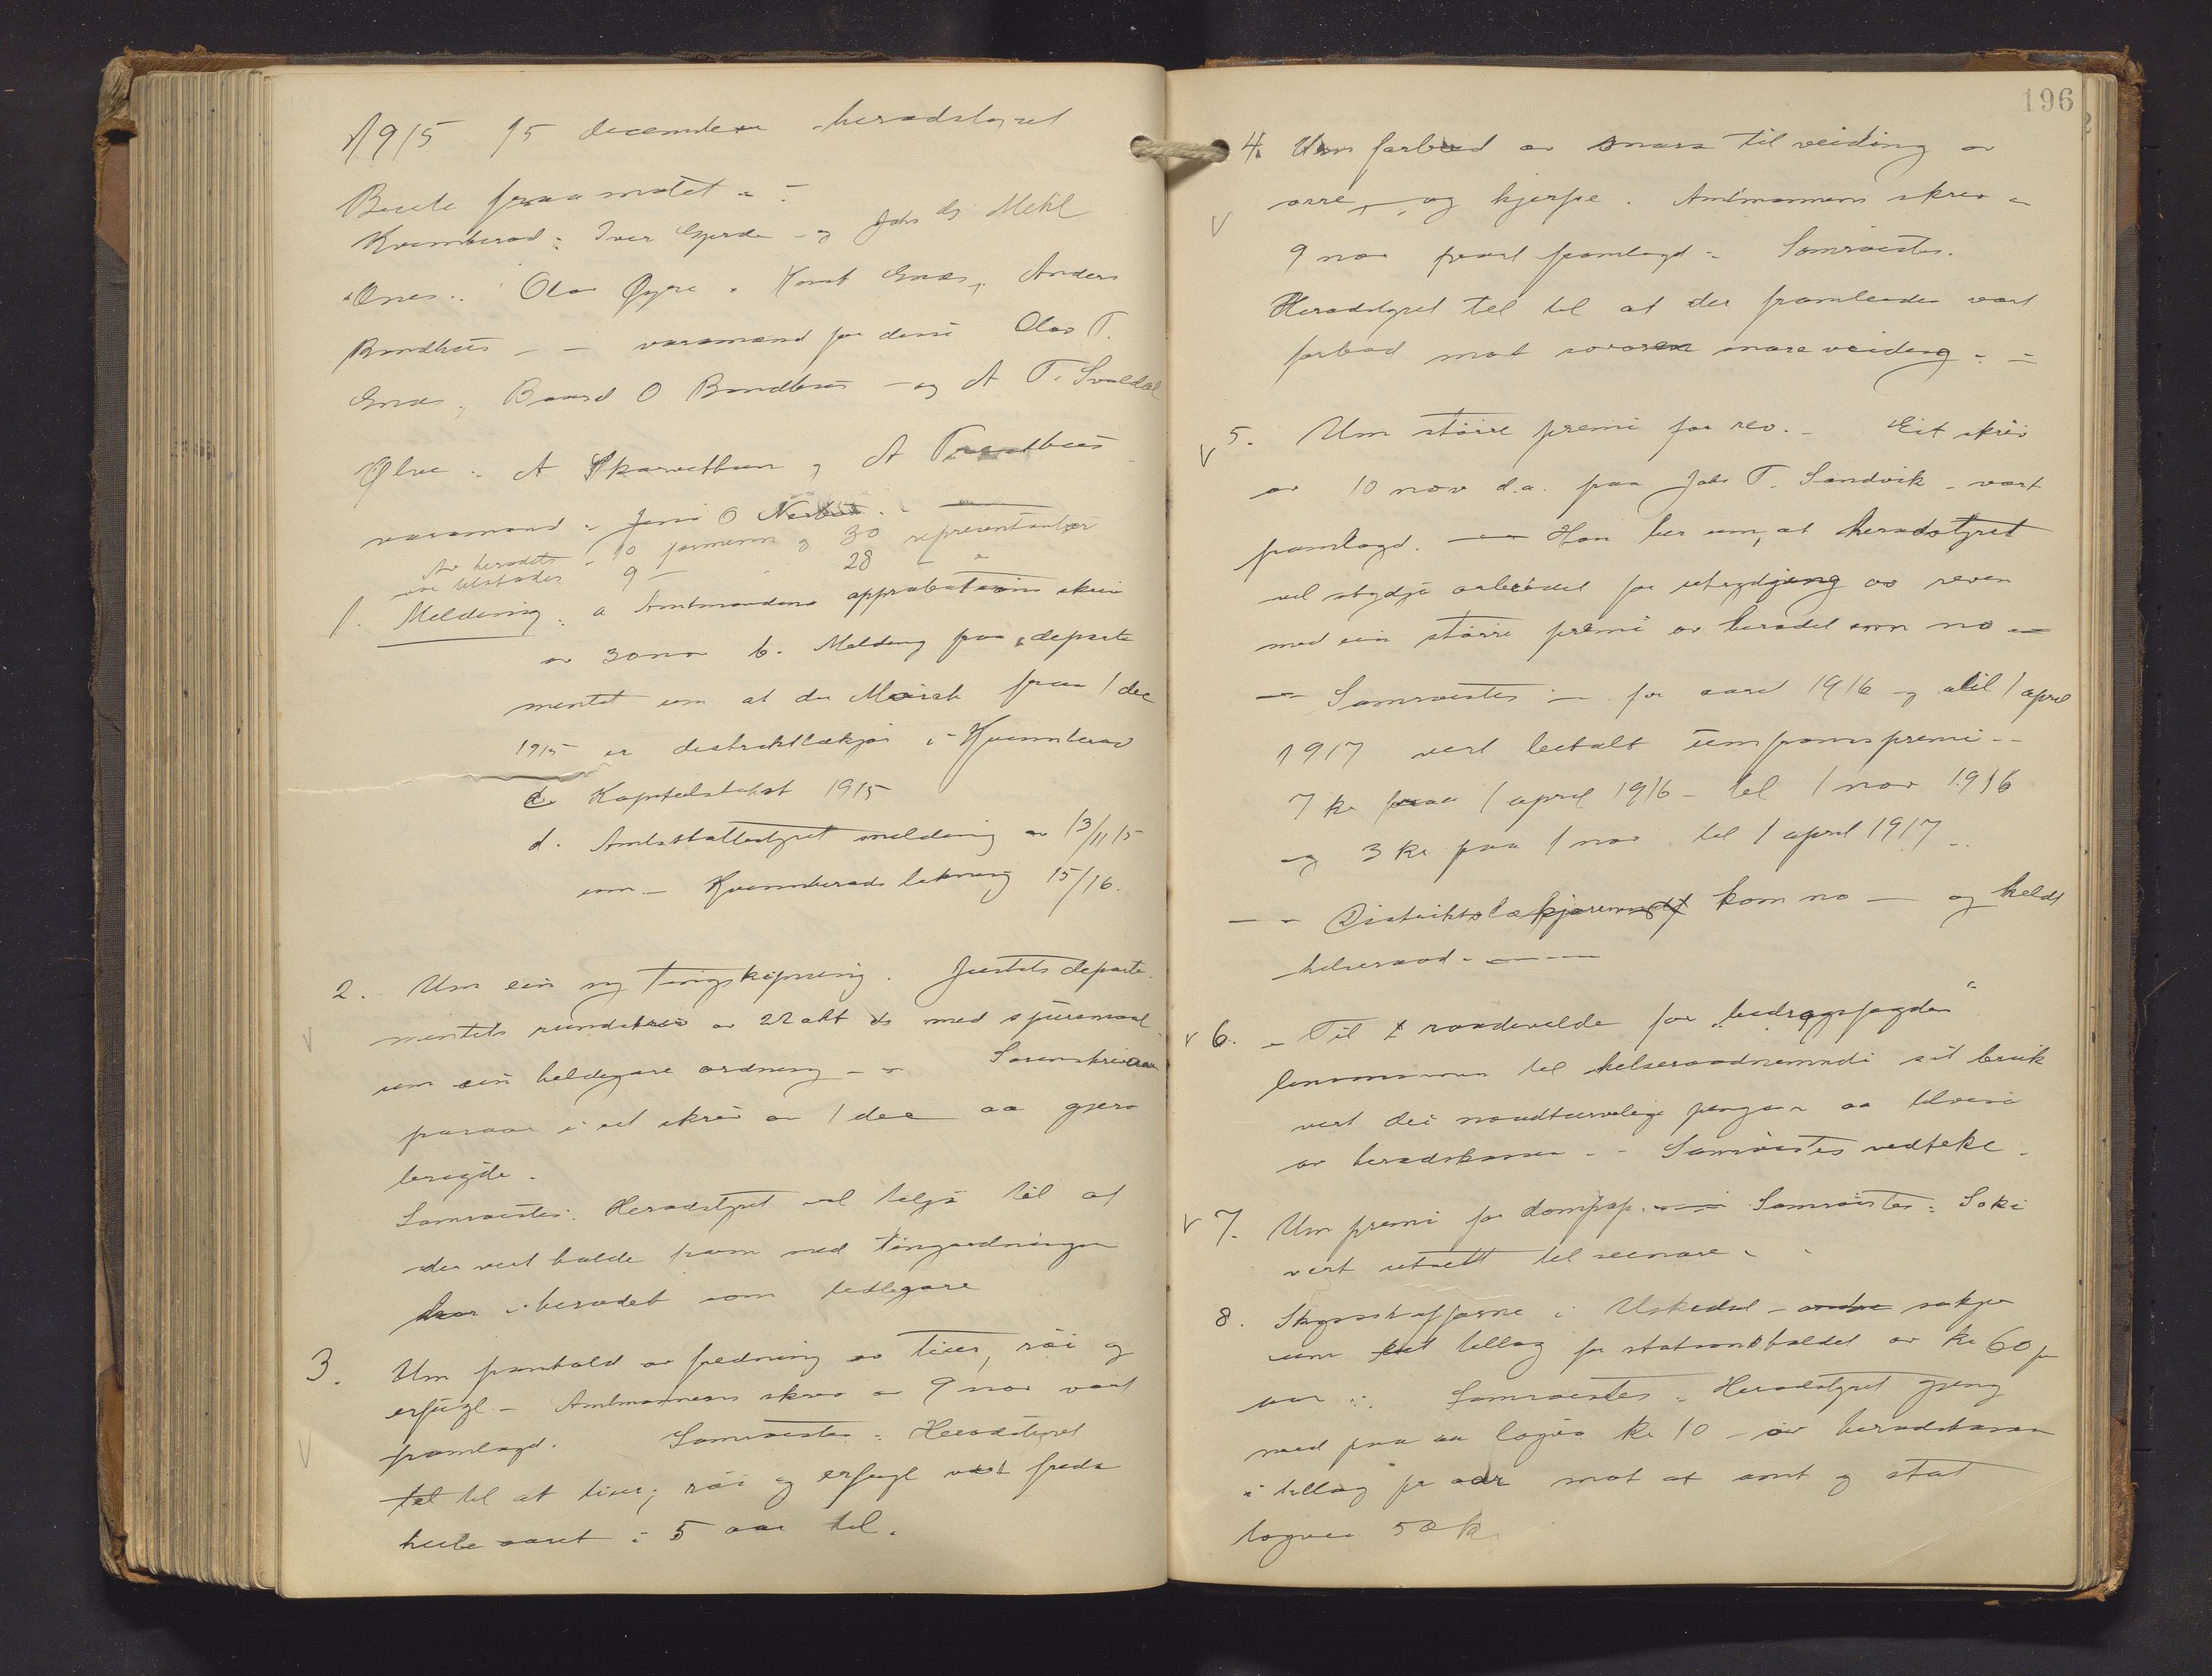 1915 15 december heradstyret
Burte fraa møtet :
Kvinnherad : Iver Gjerde og Johs Mehl
Ænes : Olav Øyre, Knut Enæs, Anders
Bondhus — varamend for desse Olav T.
Enæs, Baard O Bondhus og A T. Svaldal
Ølve : A Skarvatun og A
varamend : Jens O
Av heradets 10 formenn og 30 representantar
var tilstades 9 — 28 "
1. Melding : a Amtmandens approbations skriv
av 30 nov b. Melding fraa departe
mentet um at dr Mörch fraa 1 dec
1915 er distriktlækjar i Kvinnherad
c. Kapitelstakst 1915
d. Amtsskattestyret melding av 13/11 15
um — Kvinnherads likning 15/16.
2. Um ein ny tingskipning. Justisdeparte
mentets rundskriv av 22 okt ds med spursmaal
um ein heldigare ordning — Sorenskrivaren
i eit skriv av 1 dec aa gjera
brigde.
Samröistes: Heradstyret vil telja til at
der vert halde fram med tingordningen
her i heradet som tidlegare
3. Um framhald av fredning av tiur, röi og
erfugl — Amtmannens skriv av 9 nov vart
framlagd. Samröistes : Heradstyret
tel til at tiur, röi og erfugl vert freda
heile aaret i 5 aar til.
196
4. Um forbud av snara til veiding av
orre, og hjerpe. Amtmannens skriv
9 nov vart framlagd : Samröistes.
Heradstyret tel til at der framleides vart
forbod mot snareveiding :
5. Um större premi for rev. — Eit skriv
av 10 nov d.a. fraa Johs T. Sandvik vart
framlagd. — Han ber um, at heradstyret
vil stydja arbeidet for utrydjing av reven
med ein större premi av heradet enn no —
— Samröistes — for aaret 1916 og til 1 april
1917 vert betalt premi —
7 kr fraa 1 april 1916 — til 1 nov 1916
og 3 kr fraa 1 nov til 1 april 1917 —
— Distriktslækjaren kom no — og heldt
helseraad. —
6. Til raadvelde for
til helseraadnemndi sit bruk
vert dei naudturvelige pengar aa tilvisa
av heradskassa — Samröistes vedteke.
7. Um premi for dompap. — Samröistes : Saki
vert utsett til seinare.
8. Skysskafferne i Uskedal — søkjer
um eit tillæg for stationshaldet av kr 60 pr
aar : Samröistes : Heradstyret gjeng
med paa aa løyva kr 10 — av heradskassa
i tillæg pr aar mot at amt og stat
løyver 50 kr